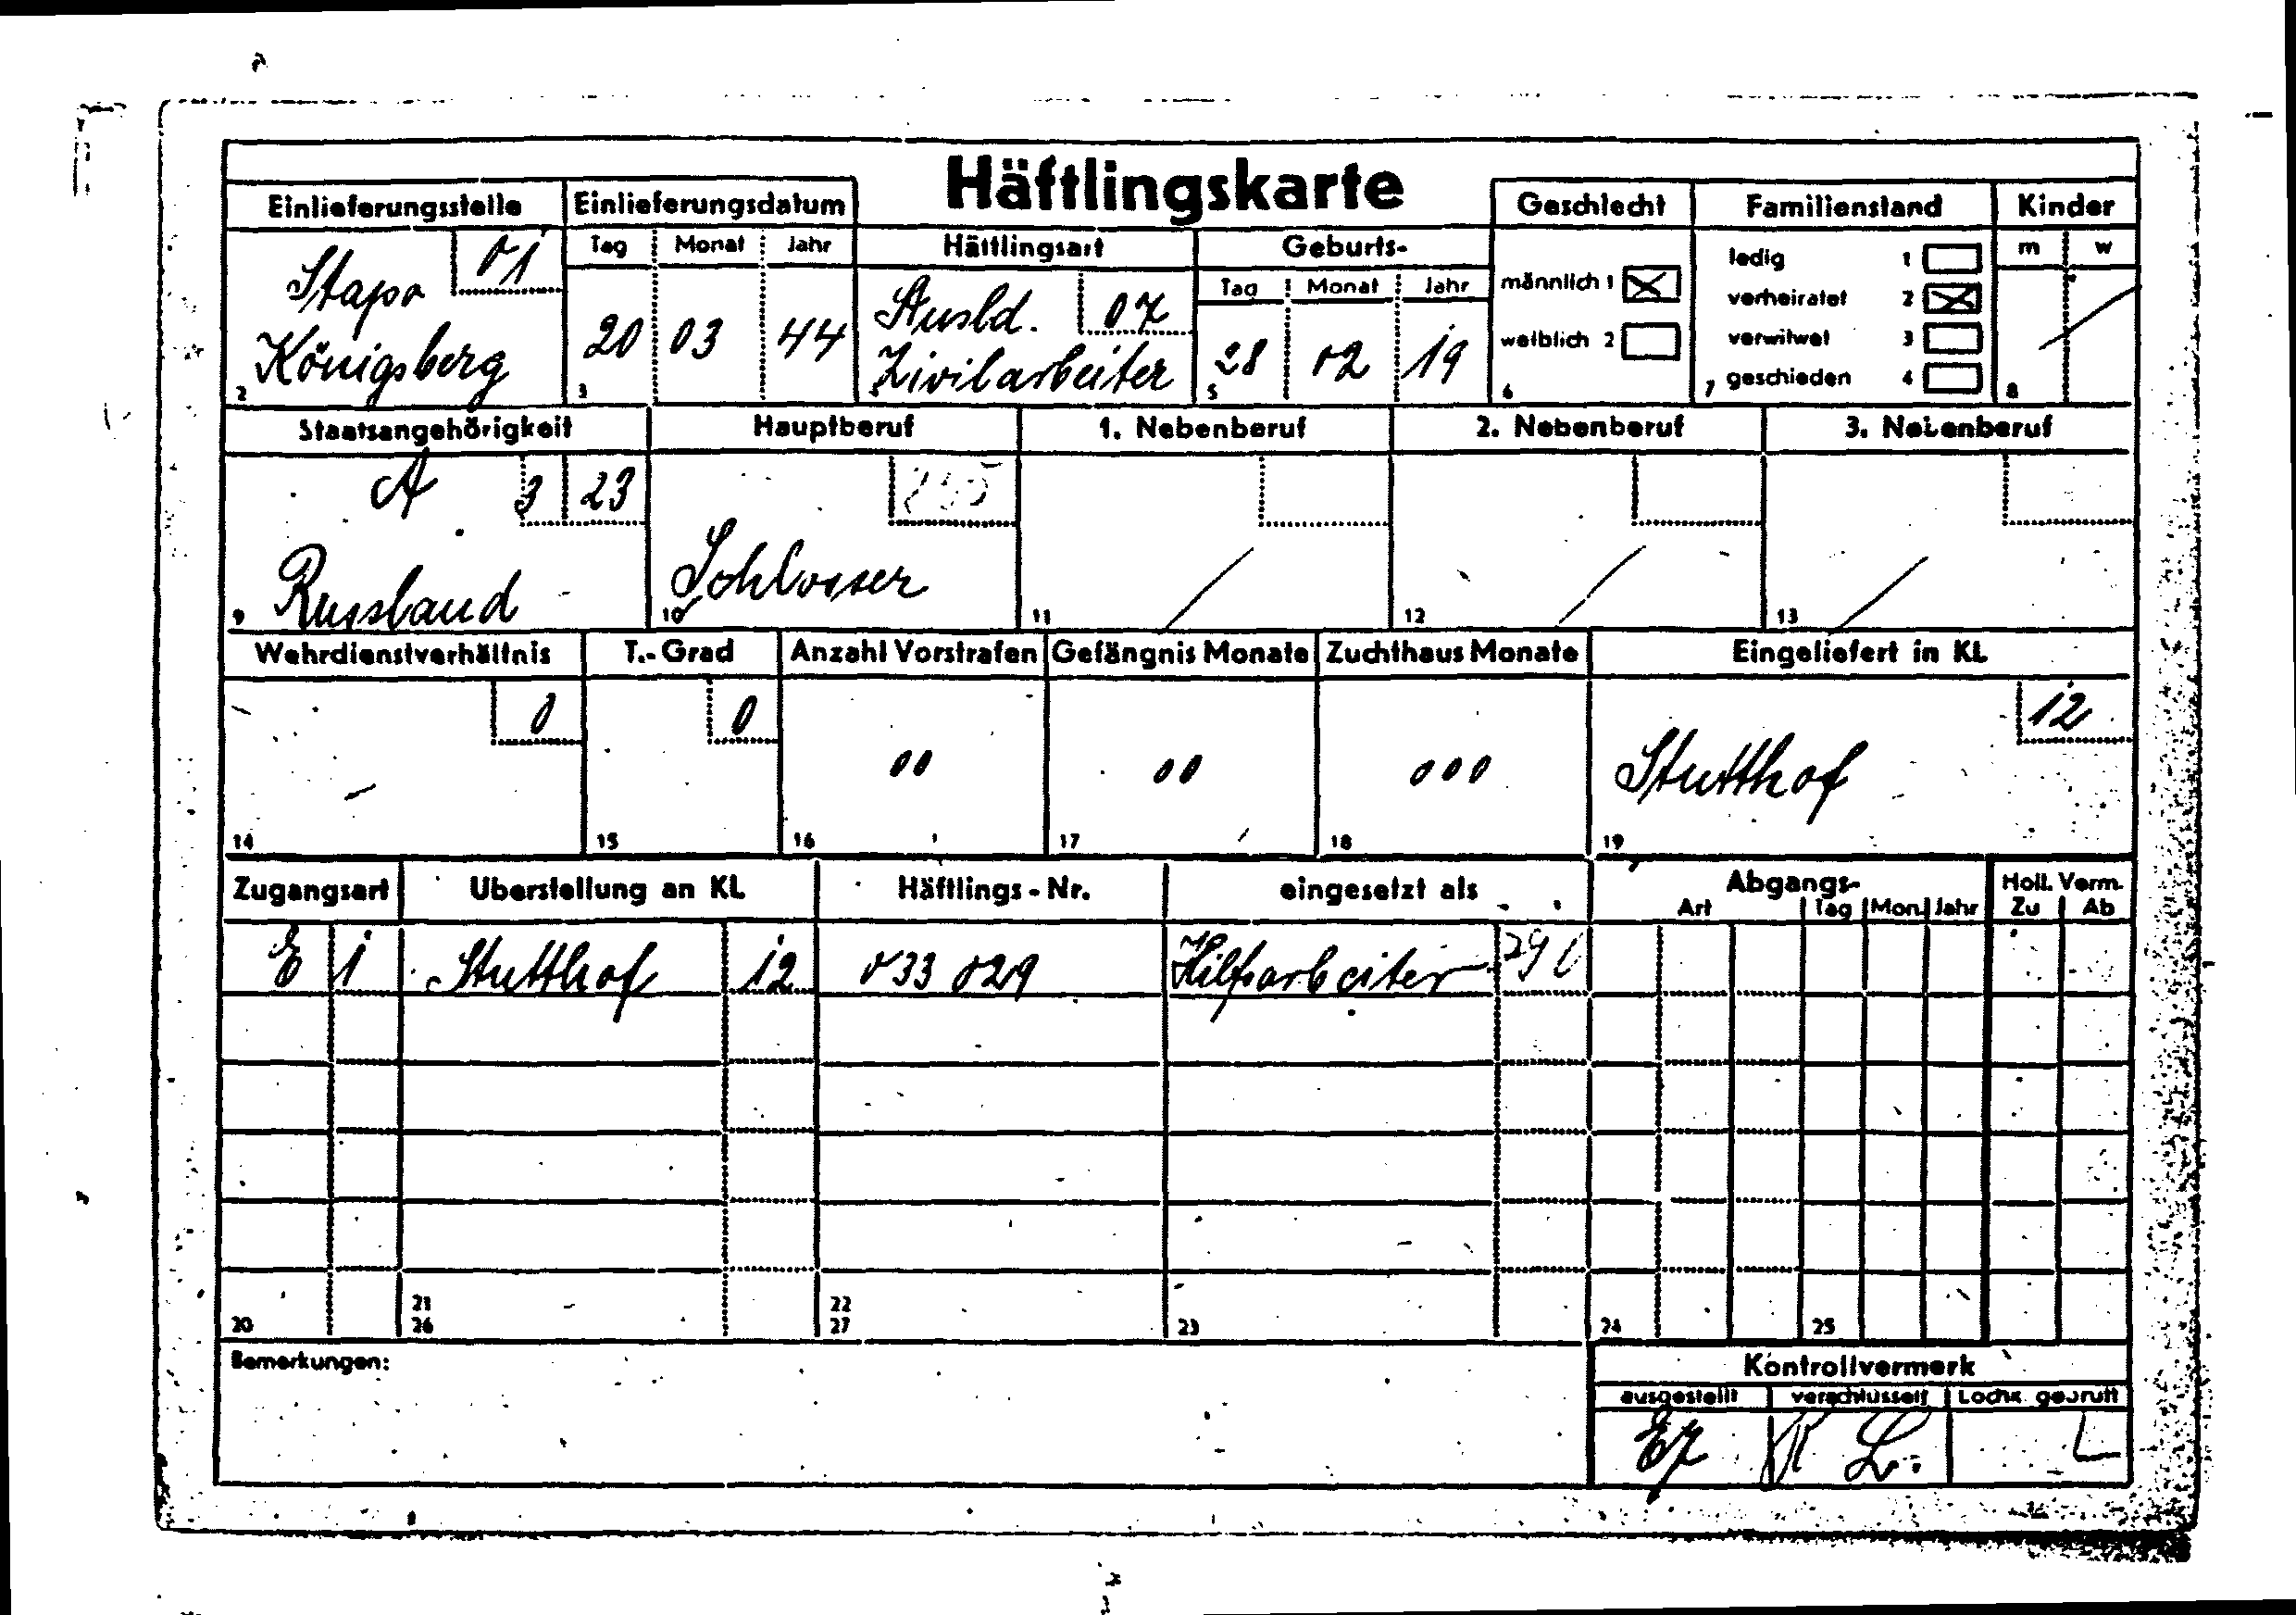 Häftlingskarte
Einlieferungsstelle
Stapo 01
Königsberg
2
Einlieferungsdatum
Tag Monat Jahr
20 03 44
3
Häftlingsart
Ausld. 07
Zivilarbeiter
Geburts-
Tag Monat Jahr
28 02 19
5
Geschlecht
männlich 1
weiblich 2
6
Familienstand
ledig 1
verheiratet 2
verwitwet 3
geschieden 4
7
Kinder
m w
8
Staatsangehörigkeit
A 3 23
Russland
9
Hauptberuf
Schlosser
10
1. Nebenberuf
11
2. Nebenberuf
12
3. Nebenberuf
13
Wehrdienstverhältnis
0
14
T.-Grad
0
15
Anzahl Vorstrafen
00
16
Gefängnis Monate
00
17
Zuchthaus Monate
000
18
Eingeliefert in KL
12
Stutthof
19
Zugangsart Uberstellung an KL Häftlings-Nr. eingesetzt als Abgangs- Holl. Verm.
Art Tag Mon. Jahr Zu Ab
E 1 Stutthof 12 033 029 Hilfsarbeiter
21 22
20 26 27 23 24 25
Bemerkungen:
Kontrollvermerk
ausgestellt verschlüsselt Lochk. geprüft